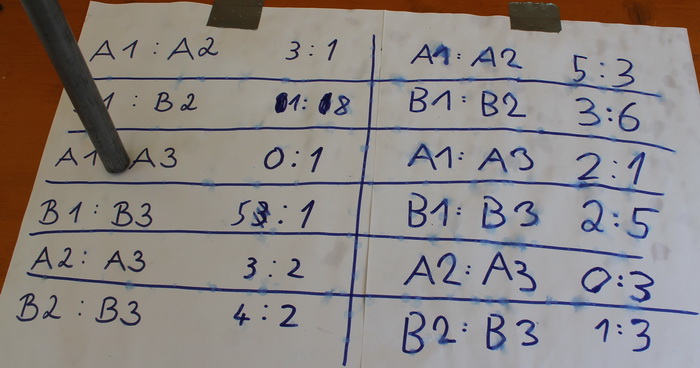 A1 : A2 3 : 1
1 : B2 1 : 8
A1 A3 0 : 1
B1 : B3 5 : 1
A2 : A3 3 : 2
B2 : B3 4 : 2
A1 : A2 5 : 3
B1 : B2 3 : 6
A1 : A3 2 : 1
B1 : B3 2 : 5
A2 : A3 0 : 3
B2 : B3 1 : 3